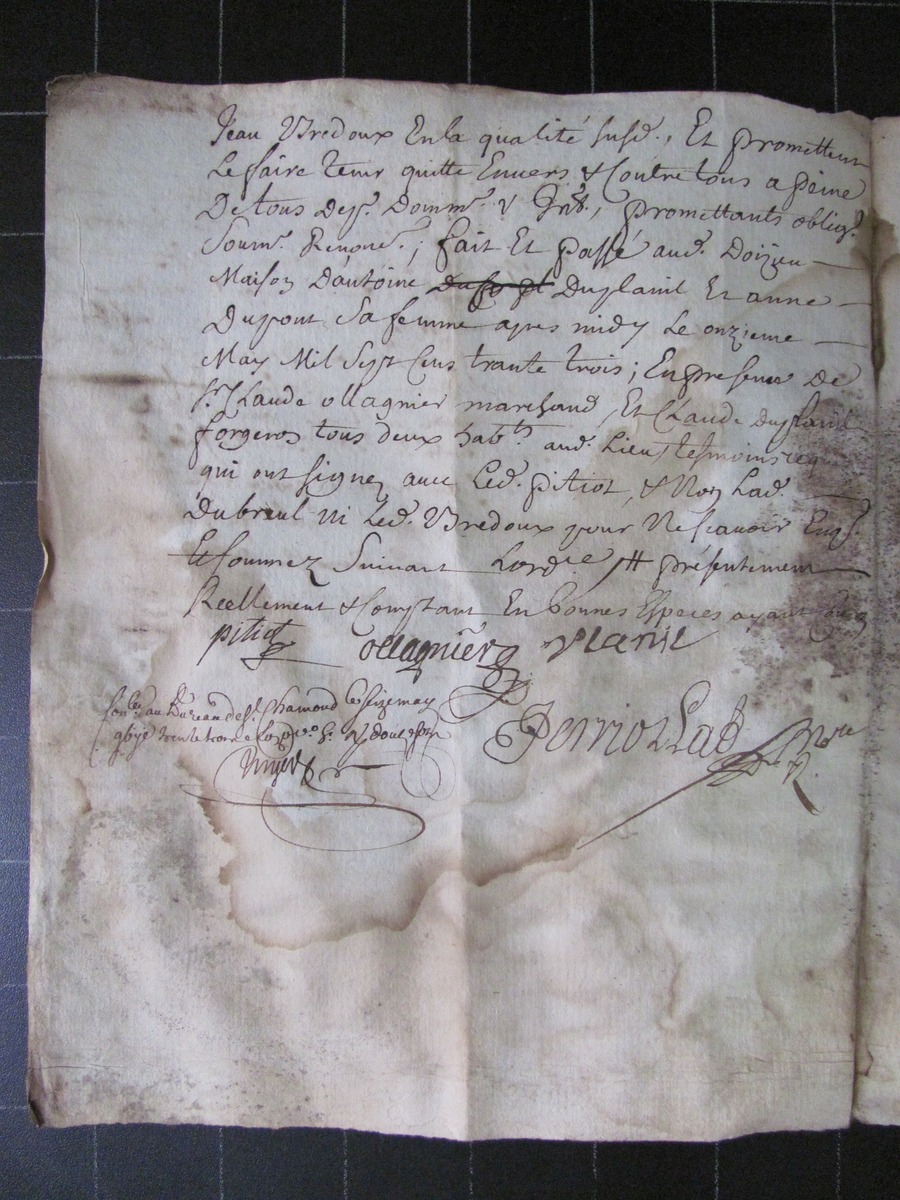 Jean Vredoux En la qualité susd., Et promettent
Le faire tenir quitte Envers & Contre tous a peine
De tous desp. Domm. & Intts., promettants oblige.
Soum. Renonc.; fait Et passé aud. Doizieu
Maison Dantoine Duplanil Et anne
Dupont Sa femme apres midy Le onzieme
May Mil Sept Cens trante trois; En presence De
Sr. Claude ollagnier marchand, Et Claude Duplanil
forgeros tous deux habts. aud. Lieu, tesmoins requis
qui ont signez avec Led. pitiot, & Non Lad.
Dubreul ni Led. Vredoux pour Ne scavoir Enq.
Et sommez Suivant Lordre /# présentement
Reellement & Comptant En bonnes Especes ayant cours
pitiot ollagnier planil
Conlé. au Bureau de St. Chamond le seize may
trente trois
Perriollad Nore
R.